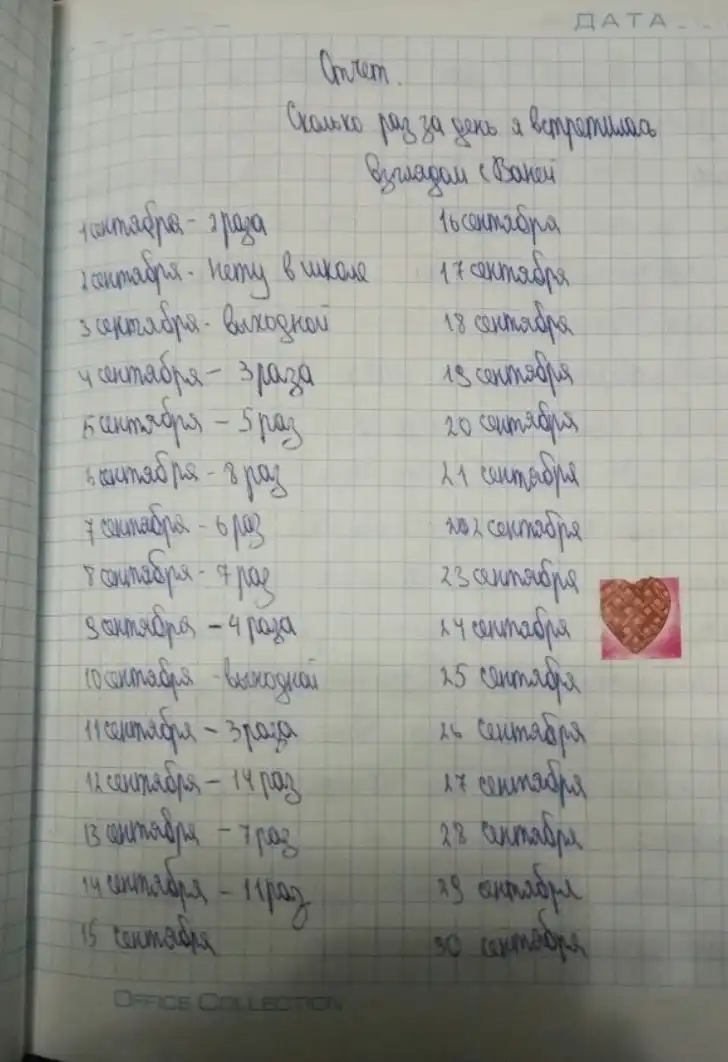 ДАТА
Отчет.
Сколько раз за день я встретилась
взглядом с Ваней
1 сентября - 2 раза
2 сентября - нету в школе
3 сентября - выходной
4 сентября - 3 раза
5 сентября - 5 раз
6 сентября - 8 раз
7 сентября - 6 раз
8 сентября - 7 раз
9 сентября - 4 раза
10 сентября - выходной
11 сентября - 3 раза
12 сентября - 14 раз
13 сентября - 7 раз
14 сентября - 11 раз
15 сентября
16 сентября
17 сентября
18 сентября
19 сентября
20 сентября
21 сентября
22 сентября
23 сентября
24 сентября
25 сентября
26 сентября
27 сентября
28 сентября
29 сентября
30 сентября
OFFICE COLLECTION